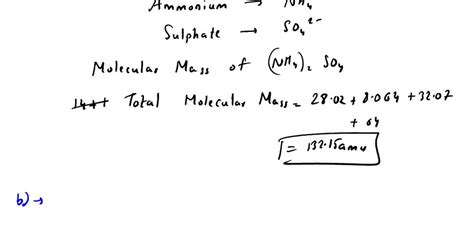 Ammonium → NH₄
Sulphate → SO₄²⁻
Molecular Mass of (NH₄)₂ SO₄
Total Molecular Mass = 28.02 + 8.064 + 32.07
+ 64
= 132.15amu
b) →